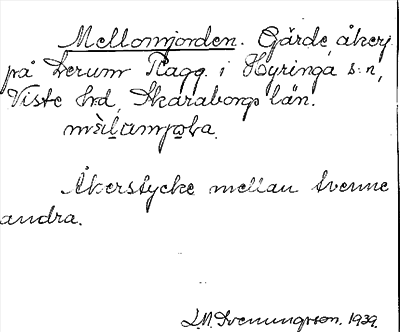 Mellomjorden. Gärde, åker,
på Lerum Ragg. i Hyringa s:n,
Viste hd, Skaraborgs län.

Åkerstycke mellan tvenne
andra.
S.M. Svenungsson. 1939.